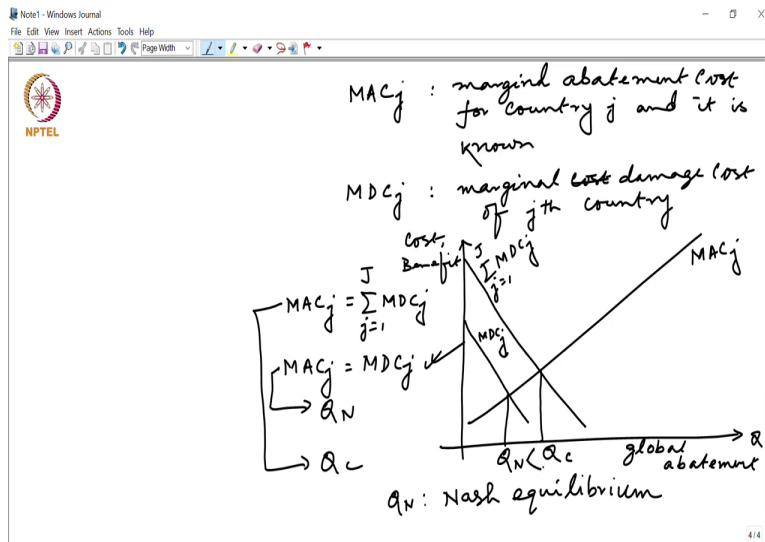 Note1 - Windows Journal
File Edit View Insert Actions Tools Help
Page Width
NPTEL
MACj : marginal abatement cost
for country j and it is
known
MDCj : marginal cost damage cost
of jth country
Cost,
Benefit
J
Σ MDCj
j=1
MACj
MACj = J Σ j=1 MDCj
MDCj
MACj = MDCj ✓
QN
QC
QN < QC
global
abatement
Q
QN : Nash equilibrium
4 / 4